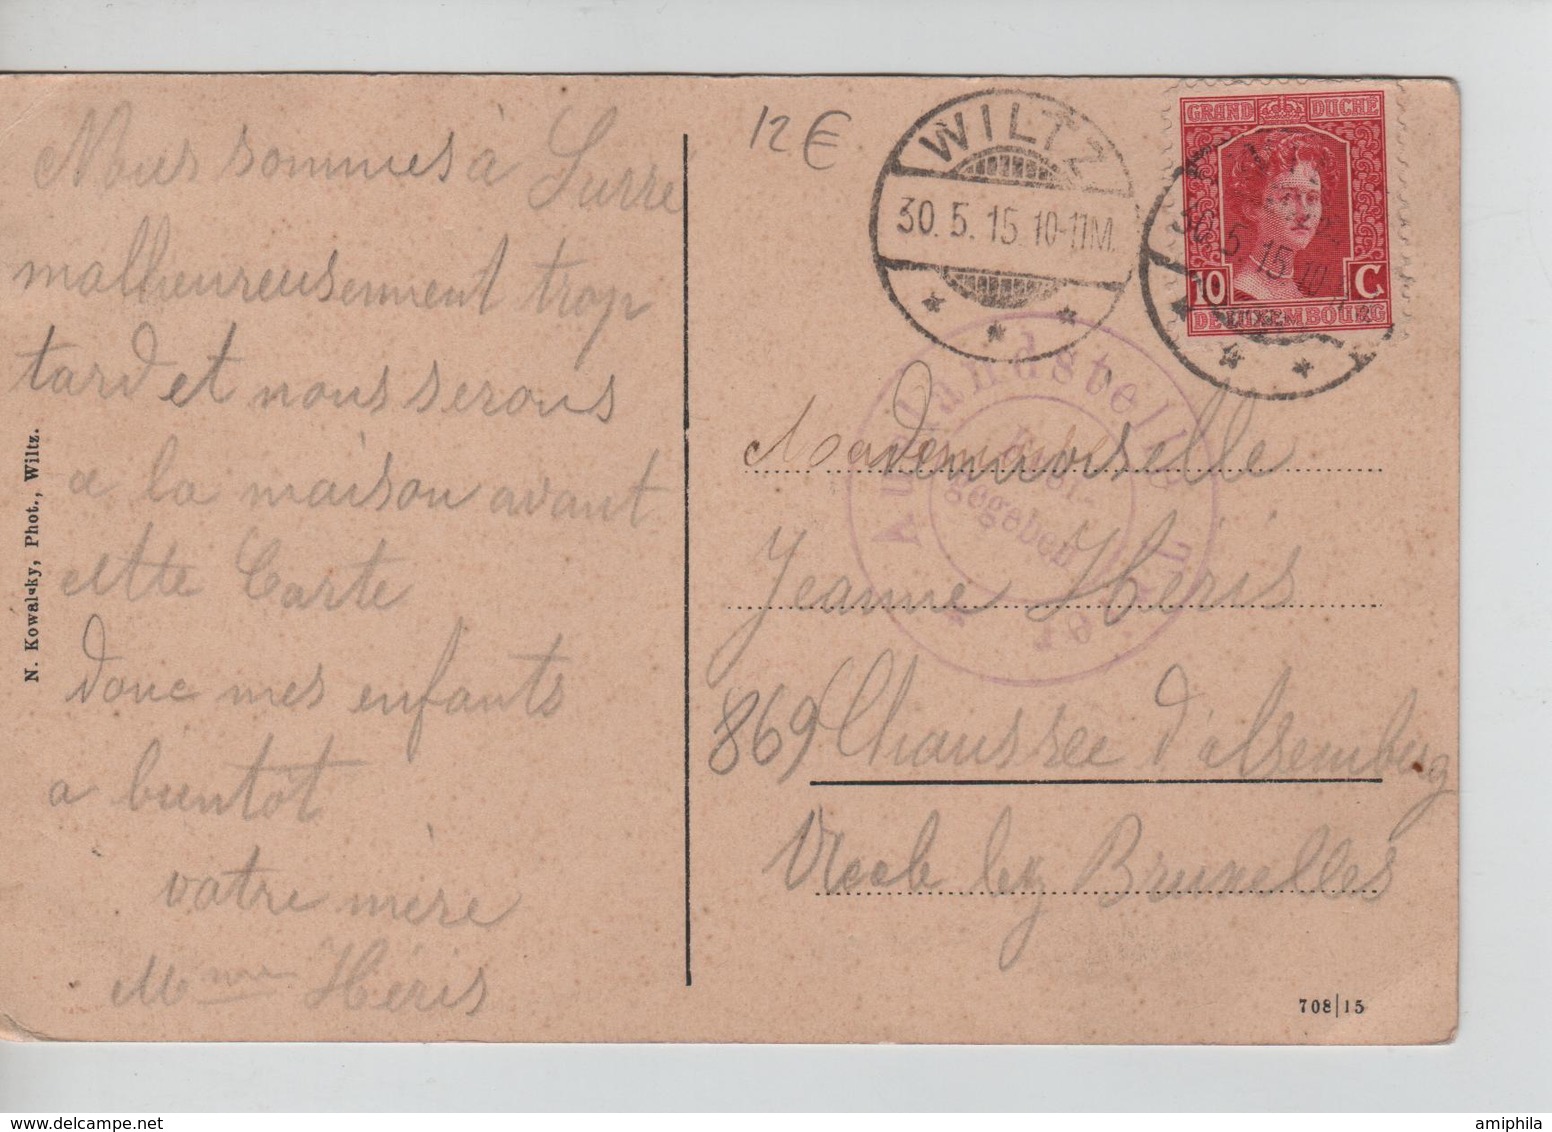 Nous sommes à Surré
malheureusement trop
tard et nous serons
a la maison avant
cette Carte
donc mes enfants
a bientot
votre mère
Mme Héris
N. Kowalsky, Phot., Wiltz.
12 €
WILTZ
30. 5. 15. 10-11M.
GRAND DUCHÉ
10 C.
DE LUXEMBOURG
Auslandstelle Trier
Frei-
gegeben
Mademoiselle
Jeanne Héris
869 Chaussee d'alsemberg
Uccle lez Bruxelles
708|15
amiphila